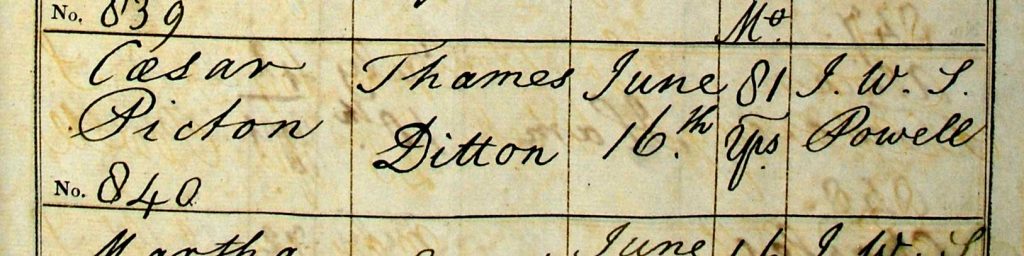 No. 839
Mo.
Cæsar Thames June 81 J. W. S.
Picton Ditton 16.th Yrs. Powell
No. 840
Martha June 16 J. W. S